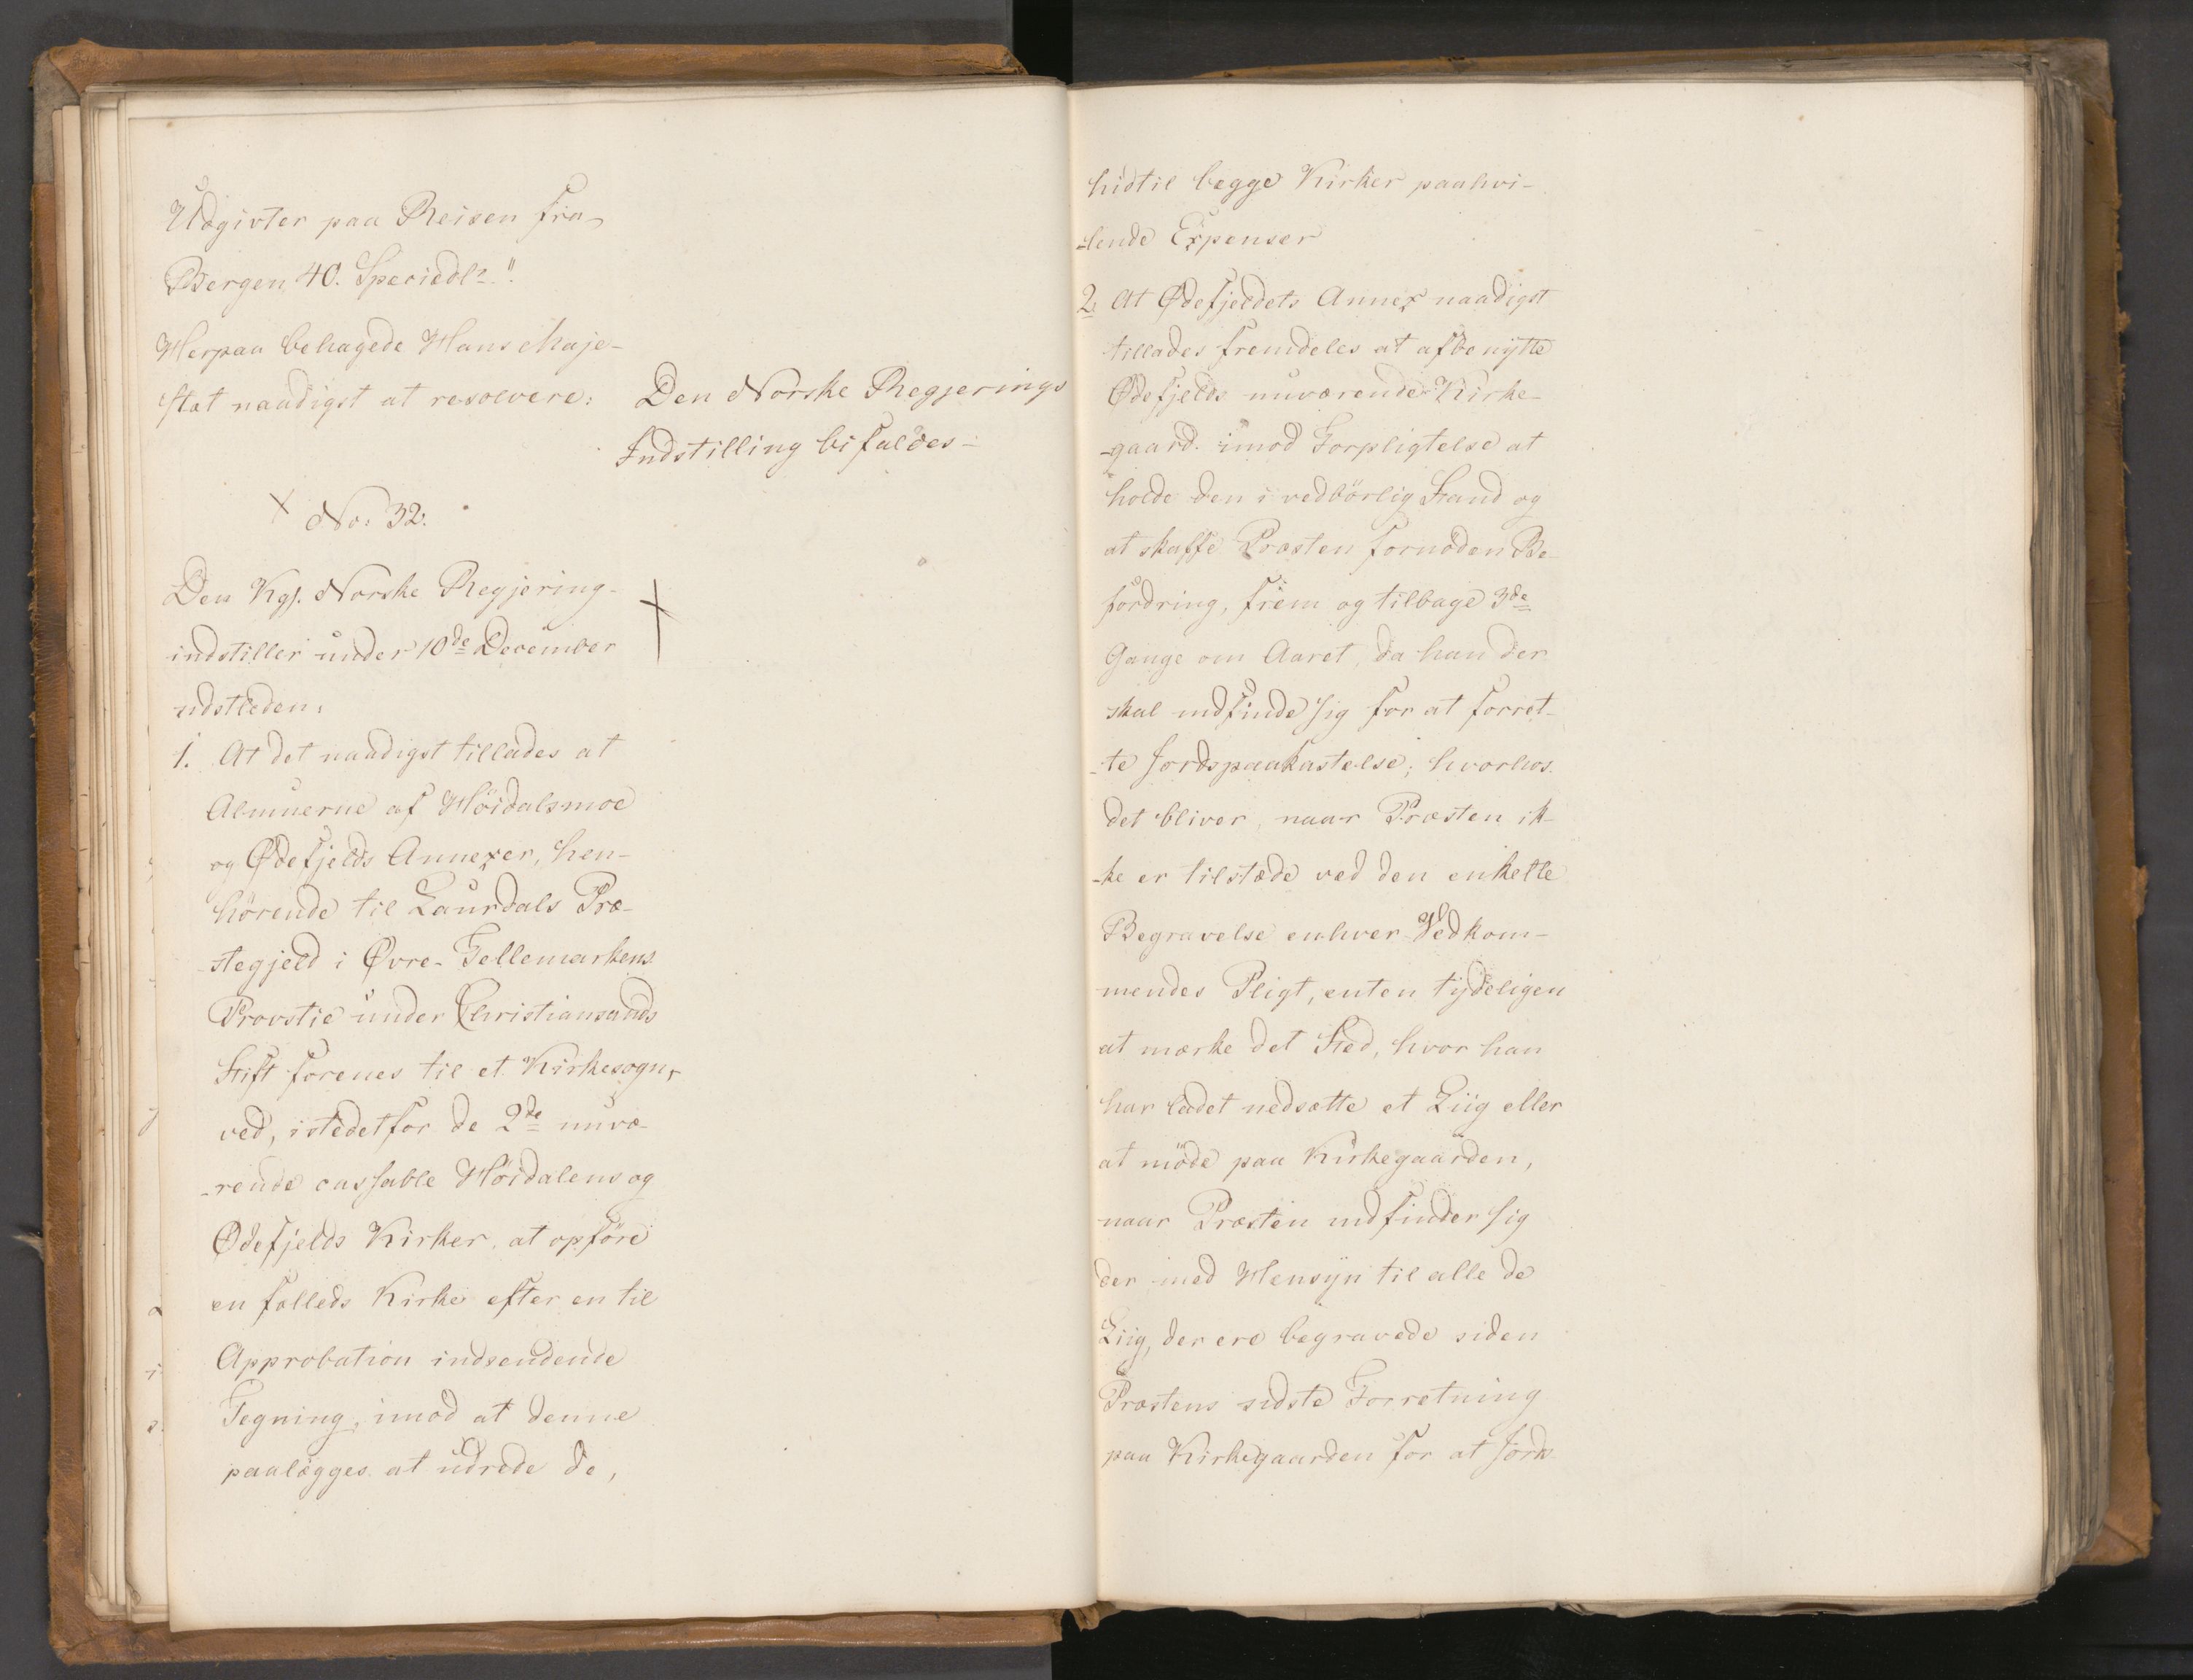 Udgivter paa Reisen fra
Bergen 40. Speciedlr."
Herpaa behagede Hans Maje-
stæt naadigst at resolvere:
Den Norske Regjerings
Indstilling bifaldes-
No: 32.
Den Kgl. Norske Regjering
indstiller under 10de December
sidstleden:
1. At det naadigst tillades at
Almuerne af Höidalsmoe
og Ødefjelds Annexer, hen-
hörende til Laurdals Præ-
stegjeld i Øvre-Tellemarkens
Provstie under Christiansands
Stift forenes til et Kirkesogn,
ved, istedetfor de 2de nuvæ-
-rende cassable Höidalens og
Ødefjelds Kirker, at opföre
en fælleds Kirke efter en til
Approbation indsendende
Tegning, imod at denne
paalægges at udrede de,
hidtil begge Kirker paahvi-
-lende Expenser
2. At Ødefjeldets Annex naadigst
tillades fremdeles at afbenytte
Ødefjelds nuværende Kirke-
-gaard imod Forpligtelse at
holde den i vedbörlig Stand og
at skaffe Præsten fornöden Be-
fordring, frem og tilbage 3de
Gange om Aaret, da han der
skal indfinde sig for at forret-
-te Jordspaakastelse; hvorhos
det bliver, naar Præsten ik-
-ke er tilstæde ved den enkelte
Begravelse enhver Vedkom-
mendes Pligt, enten tydeligen
at mærke det Sted, hvor han
har ladet nedsætte et Liig eller
at möde paa Kirkegaarden,
naar Præsten indfinder sig
der med Hensyn til alle de
Liig, der ere begravede siden
Præstens sidste Forretning
paa Kirkegaarden for at Jords